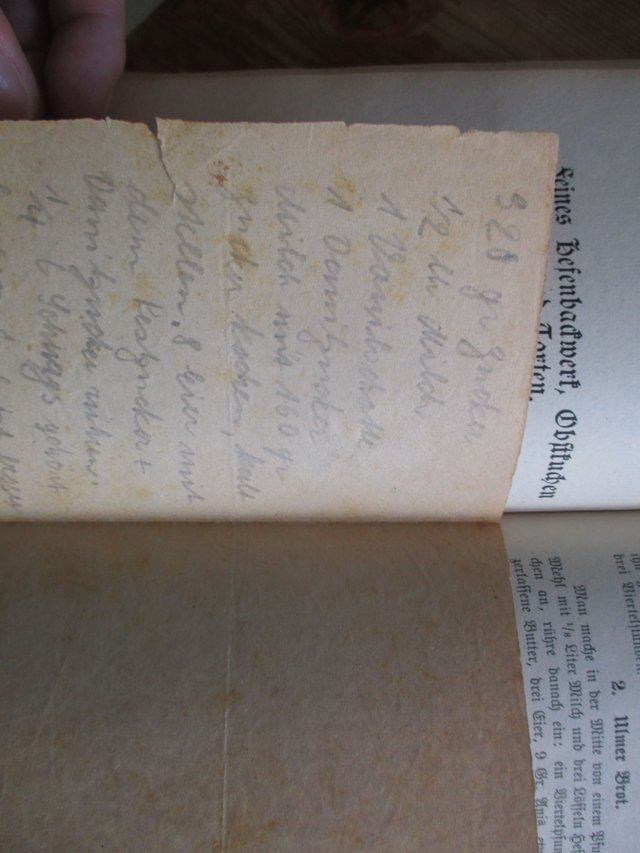 320 gr Zucker
1/2 ltr Milch
1 Vanilleschotte
1 Vannizucker
Milch und 160 gr
Zucker kochen, kalt
stellen. 8 Eier mit
dem Restzucker +
Vannizucker rühren.
1/4 l Schlags gehört
Feines Hefenbackwerk, Obstkuchen
Torten.
drei Viertelstunden.
2. Ulmer Brot.
Man mache in der Mitte von einem
Mehl mit 1/8 Liter Milch und drei Löffeln
chen an, rühre danach ein: ein
zerlassene Butter, drei Eier, 9 Gr. Anis